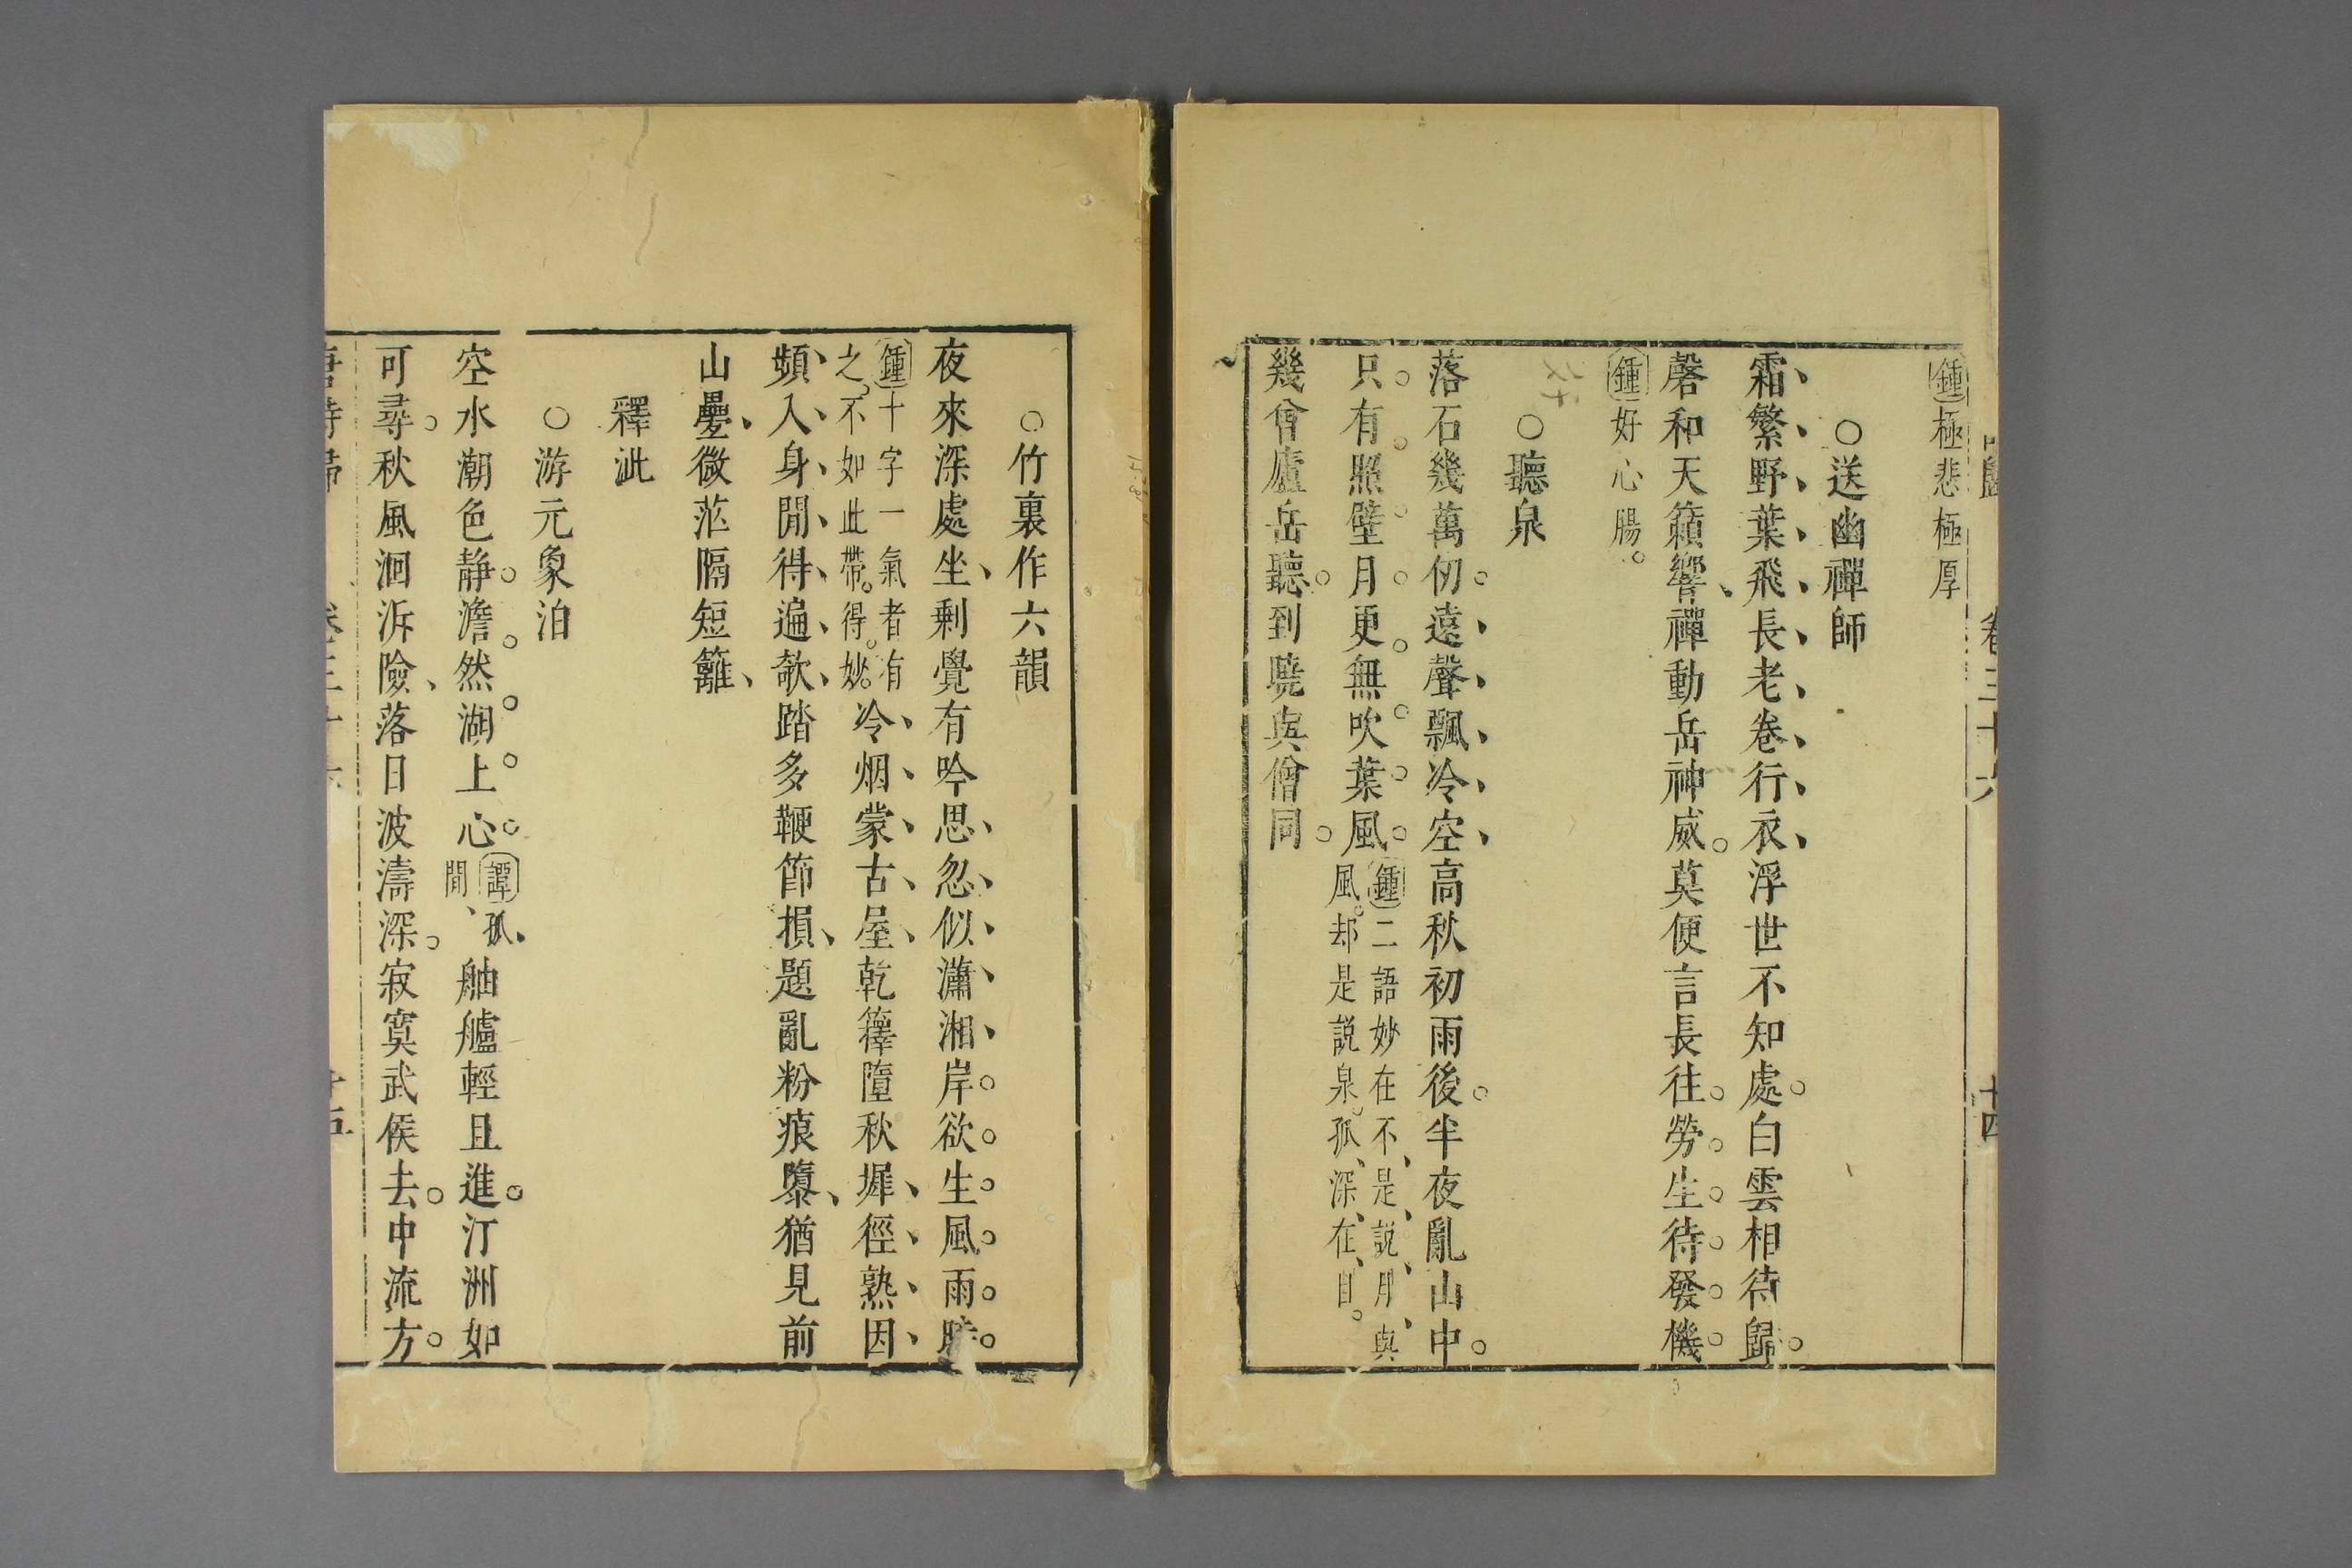 鍾極悲極厚
○送幽禪師
霜繁野葉飛長老卷行衣浮世不知處白雲相待歸
磬和天籟響禪動岳神威莫便言長往勞生待發機
鍾好心腸
○聽泉
落石幾萬仞遠聲飄冷空高秋初雨後半夜亂山中
只有照壁月更無吹葉風鍾二語妙在不是説月與
風却是説泉孤深在目
幾曾廬岳聽到曉與僧同
卷三十六
十四
○竹裏作六韻
夜來深處坐剩覺有吟思忽似瀟湘岸欲生風雨時
鍾十字一氣者有
之不如此帶得妙冷烟蒙古屋乾籜墮秋墀徑熟因
頻入身閒得遍欹踏多鞭節損題亂粉痕隳猶見前
山疊微茫隔短籬
釋泚
○游元象泊
空水潮色静澹然湖上心譚孤
閒舳艫輕且進汀洲如
可尋秋風洄泝險落日波濤深寂寞武侯去中流方
唐詩歸
卷三十六
十五